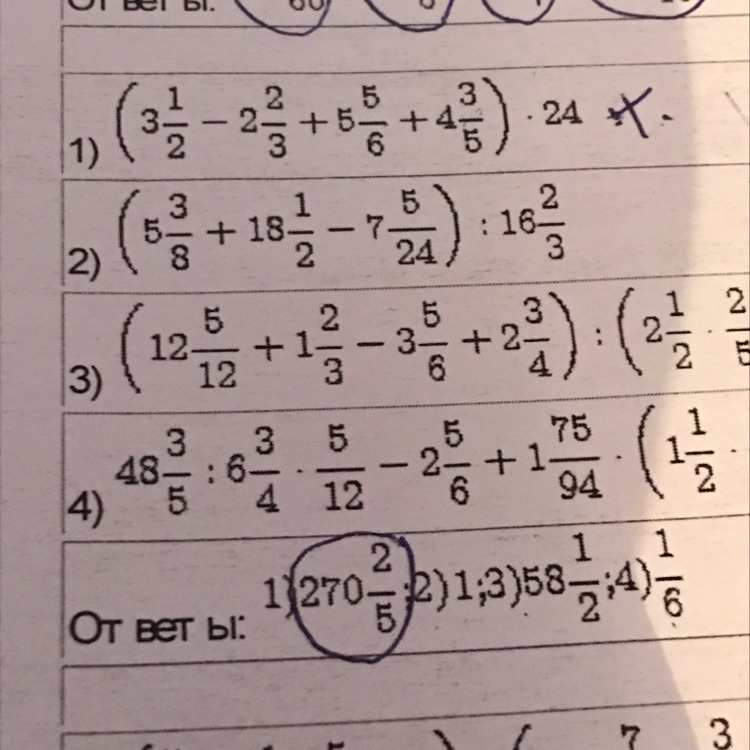 От вет ы:
1) (3 1/2 − 2 2/3 + 5 5/6 + 4 3/5) · 24
2) (5 3/8 + 18 1/2 − 7 5/24) : 16 2/3
3) (12 5/12 + 1 2/3 − 3 5/6 + 2 3/4) : (2 1/2 · 2/5
4) 48 3/5 : 6 3/4 · 5/12 − 2 5/6 + 1 75/94 · (1 1/2 ·
От вет ы: 1)270 2/5;2)1;3)58 1/2;4)1/6
7 3